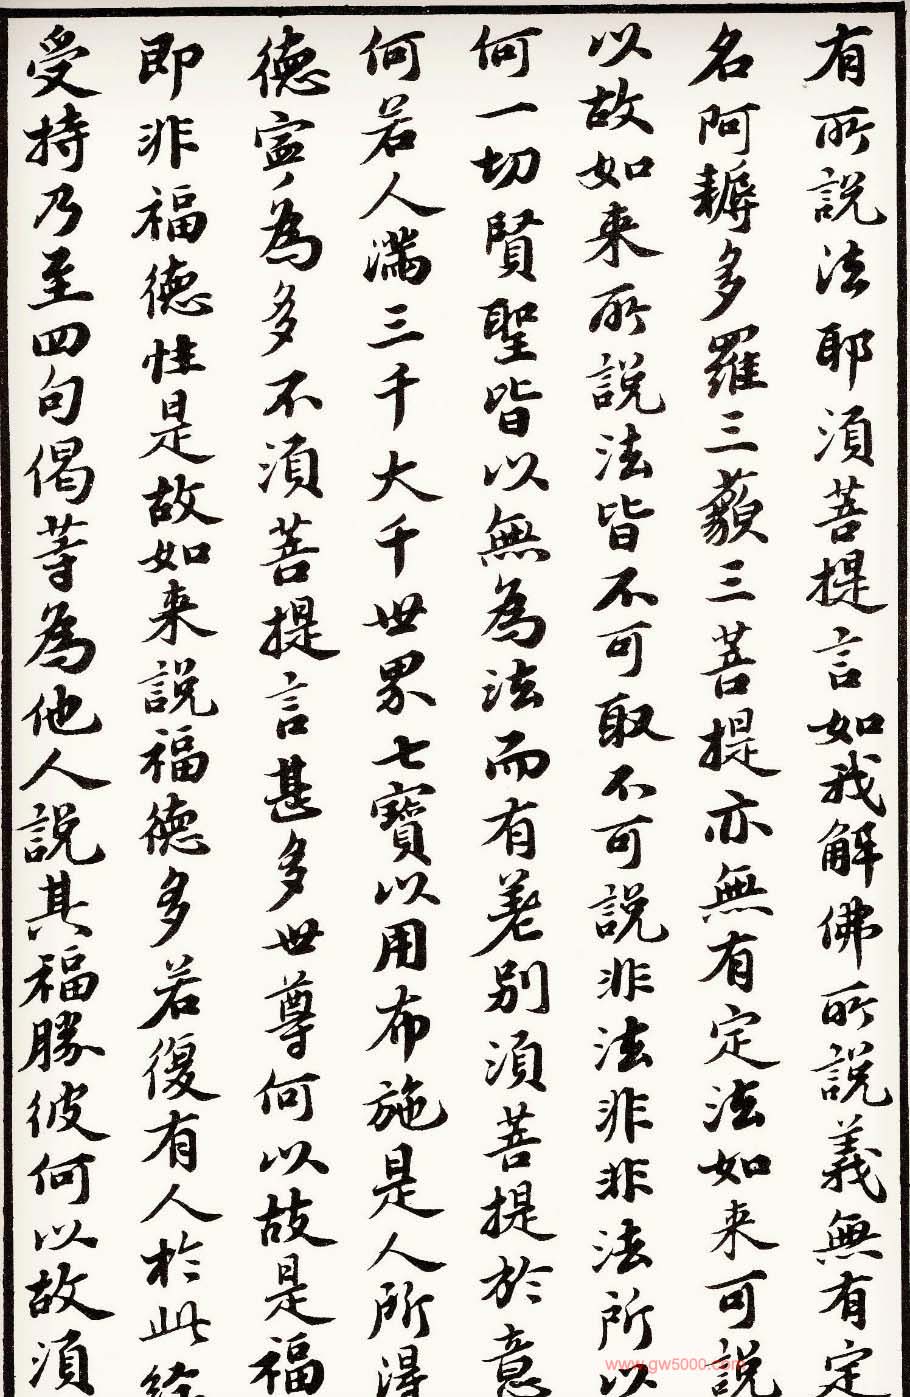 有所說法耶須菩提言如我解佛所說義無有定
名阿耨多羅三藐三菩提亦無有定法如来可說
以故如来所說法皆不可取不可說非法非非法所以
何一切賢聖皆以無為法而有差别須菩提於意
何若人滿三千大千世界七寶以用布施是人所得
德寧為多不須菩提言甚多世尊何以故是福
即非福德性是故如来說福德多若復有人於此經
受持乃至四句偈等為他人說其福勝彼何以故須
www.gw5000.com